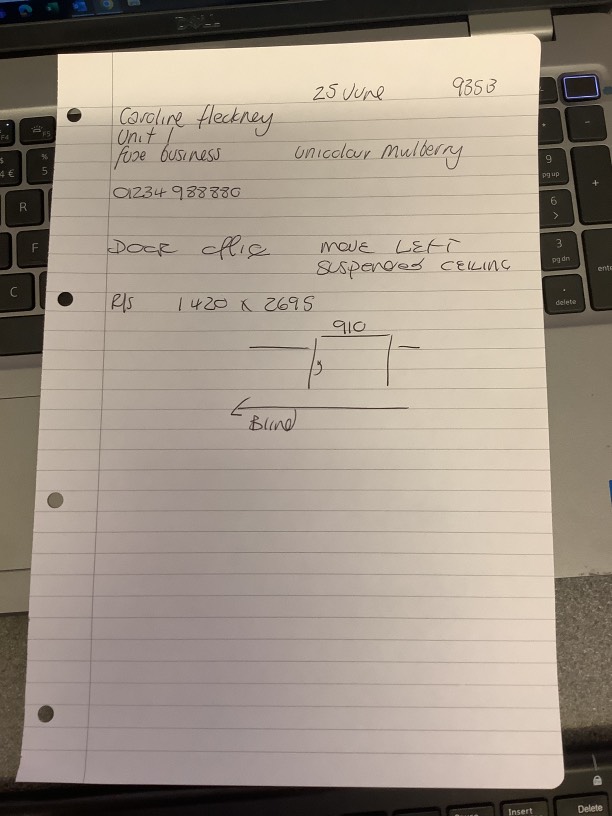 DELL
25 June 9353
Caroline fleckney
Unit 1
fuse business unicolour mulberry
01234 988880
Door office move LEFT
suspended CEILING
R/S 1420 x 2695
910
Blind
F4
F5
4 €
%
5
R
F
C
9
pg up
+
6
>
3
pg dn
enter
.
delete
Insert
Delete